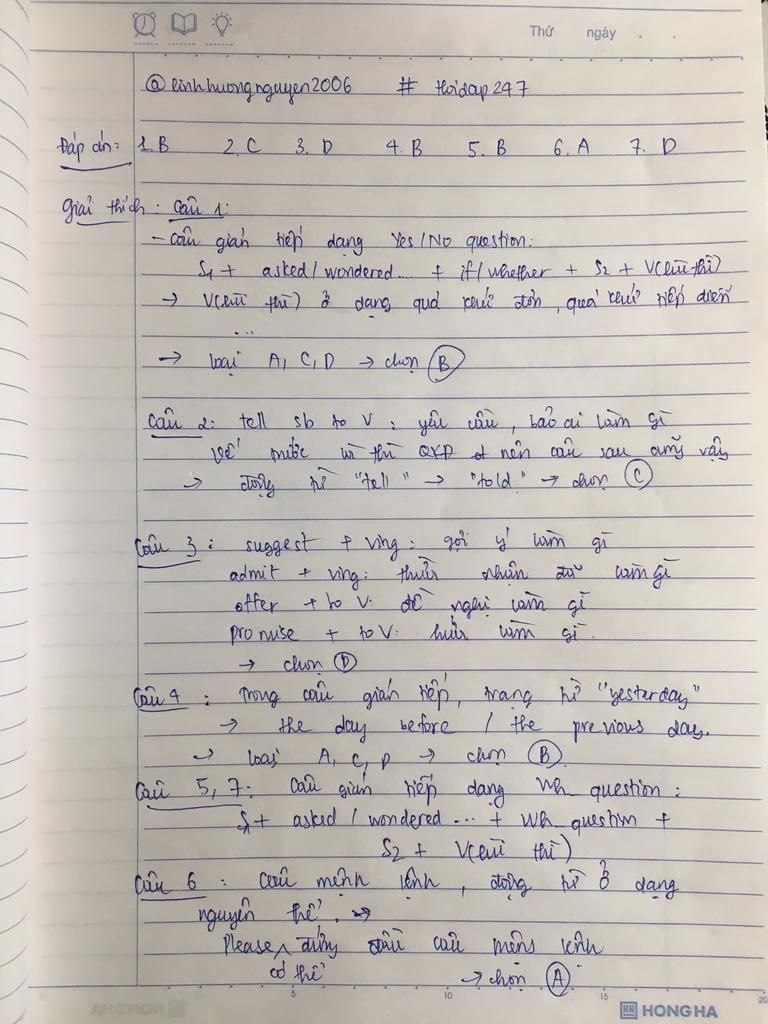 Thứ ngày . .
@linhhuongnguyen2006 # hoidap247
Đáp án: 1. B 2. C 3. D 4. B 5. B 6. A 7. D
Giải thích: Câu 1:
- Câu gián tiếp dạng Yes/No question:
S1 + asked/ wondered... + if/whether + S2 + V(lùi thì)
→ V(lùi thì) ở dạng quá khứ đơn, quá khứ tiếp diễn
...
→ loại A, C, D → chọn B
Câu 2: tell sb to V: yêu cầu, bảo ai làm gì
Vế trước là thì QKĐ nên câu sau cũng vậy
→ động từ "tell" → "told" → chọn C
Câu 3: suggest + Ving: gợi ý làm gì
admit + Ving: thừa nhận đã làm gì
offer + to V: đề nghị làm gì
promise + to V: hứa làm gì.
→ chọn D
Câu 4: Trong câu gián tiếp, trạng từ "yesterday"
→ the day before / the previous day.
→ loại A, C, D → chọn B
Câu 5, 7: Câu gián tiếp dạng Wh_question:
S1 + asked / wondered ... + Wh_question +
S2 + V(lùi thì)
Câu 6: Câu mệnh lệnh, động từ ở dạng
nguyên thể. →
Please có thể đứng đầu câu mệnh lệnh
→ chọn A
5 10 15 20
HH HONG HA